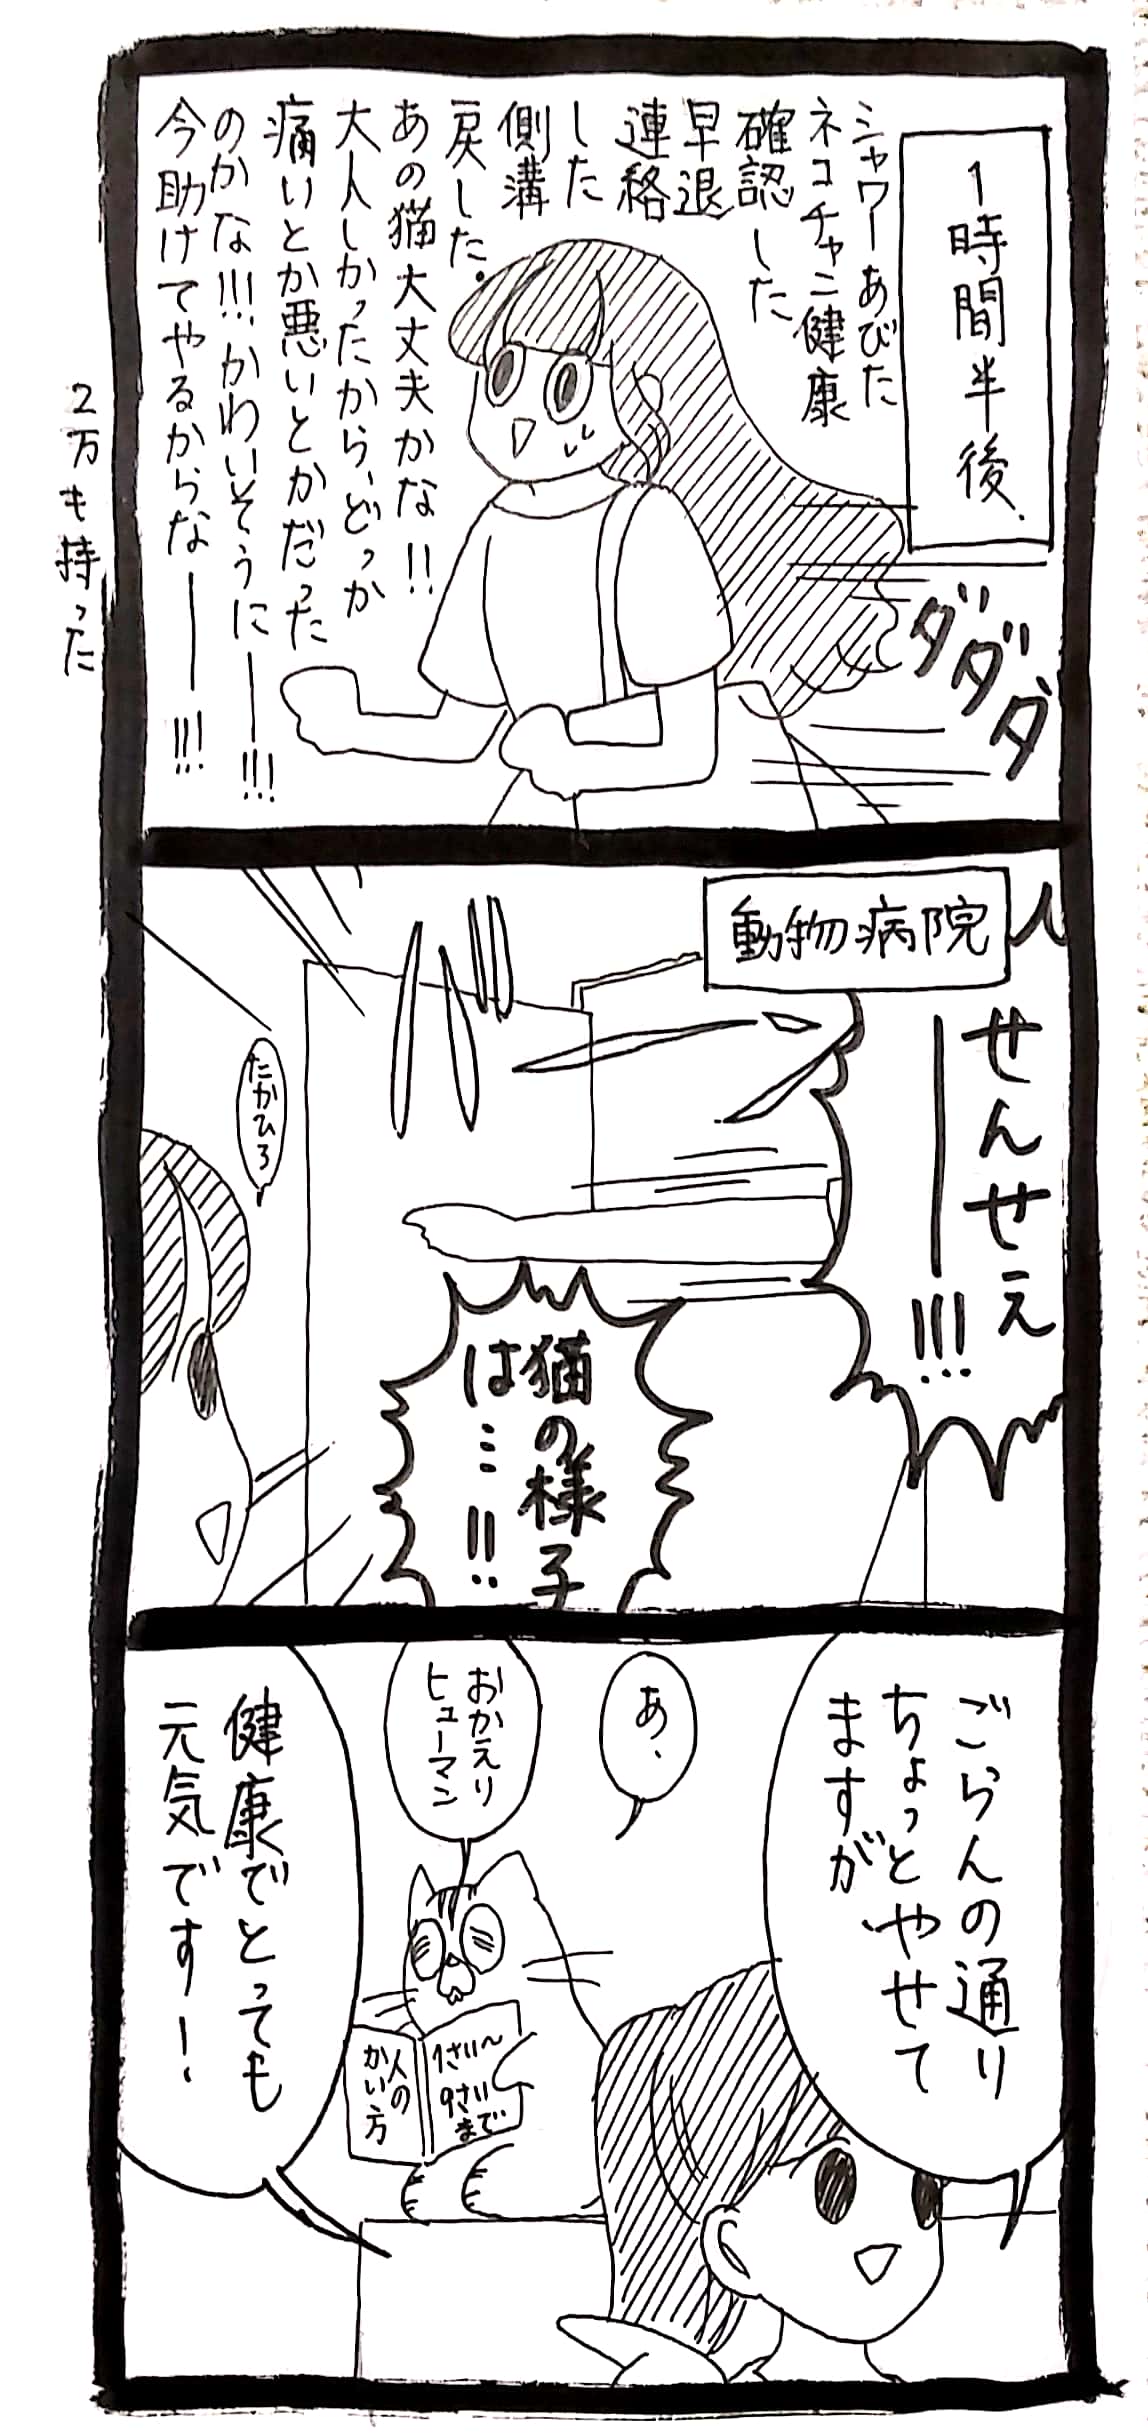 1時間半後、
シャワーあびた
ネコチャニ健康
確認した
早退
連絡
した
側溝
戻した。
あの猫大丈夫かな!!
大人しかったから、どっか
痛いとか悪いとかだった
のかな!!!かわいそうに――!!!
今助けてやるからな――!!!
2万も持った
ダダダ
動物病院
せんせえ
――!!!
たかひろ
猫の様子
は…!!
ごらんの通り
ちょっとやせて
ますが、
あ、
おかえり
ヒューマン
人の
かい方
1さい〜
9さい
まで
健康でとっても
元気です!